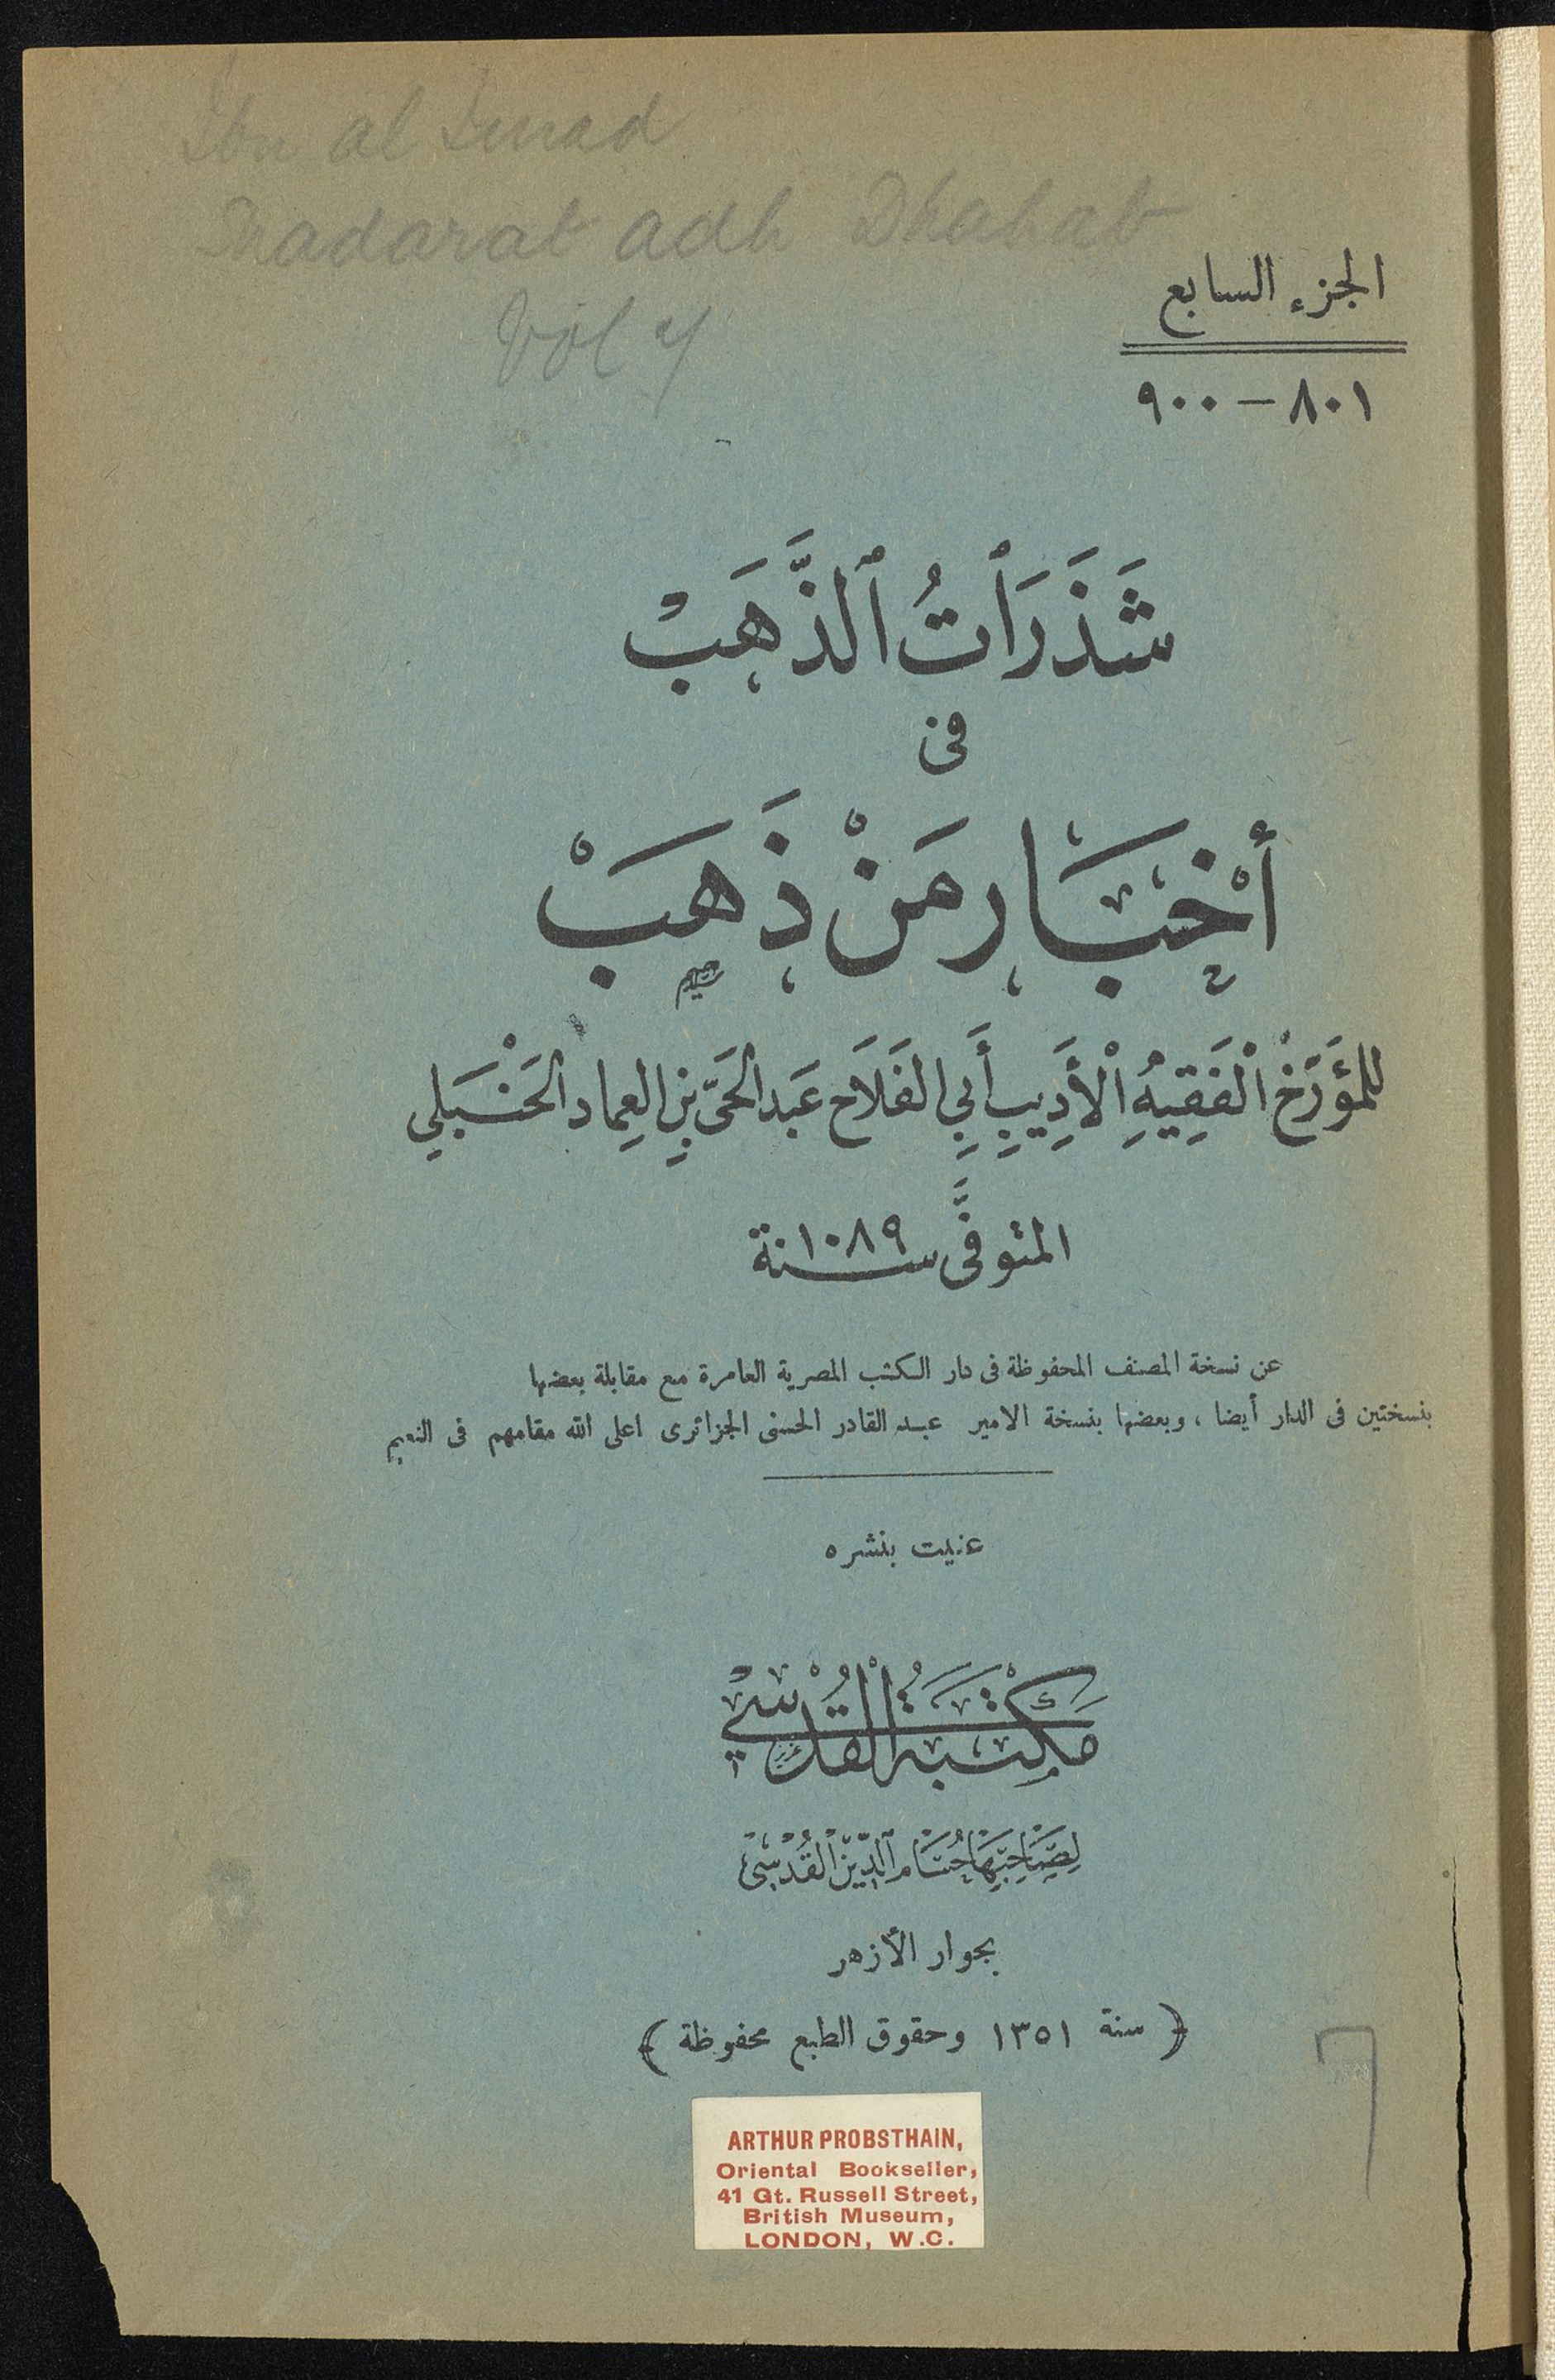 Ibn al Imad
Shadarat adh Dhahab
Vol 7
الجزء السابع
٨٠١ — ٩٠٠
شَذَرَاتُ ٱلذَّهَبْ
فى
أَخْبَار مَنْ ذَهَبْ
للمؤَرّخ الْفَقِيهِ الْأَدِيبِ أَبِي الفَلَاح عَبد الحَىّ بنِ العِماد الحَنْبَلي
المتوفَّى سنة ١٠٨٩
عن نسخة المصنف المحفوظة فى دار الكتب المصرية العامرة مع مقابلة بعضها
بنسختين فى الدار أيضا ، وبعضها بنسخة الامير عبد القادر الحسنى الجزائرى اعلى الله مقامهم فى النعيم
عنيت بنشره
مَكْتَبَةُ الْقُدْسِي
لِصَاحِبِهَا حُسَام ٱلدِّيْنِ الْقُدْسِيْ
بجوار الأزهر
﴿ سنة ١٣٥١ وحقوق الطبع محفوظة ﴾
7
ARTHUR PROBSTHAIN,
Oriental Bookseller,
41 Gt. Russell Street,
British Museum,
LONDON, W.C.